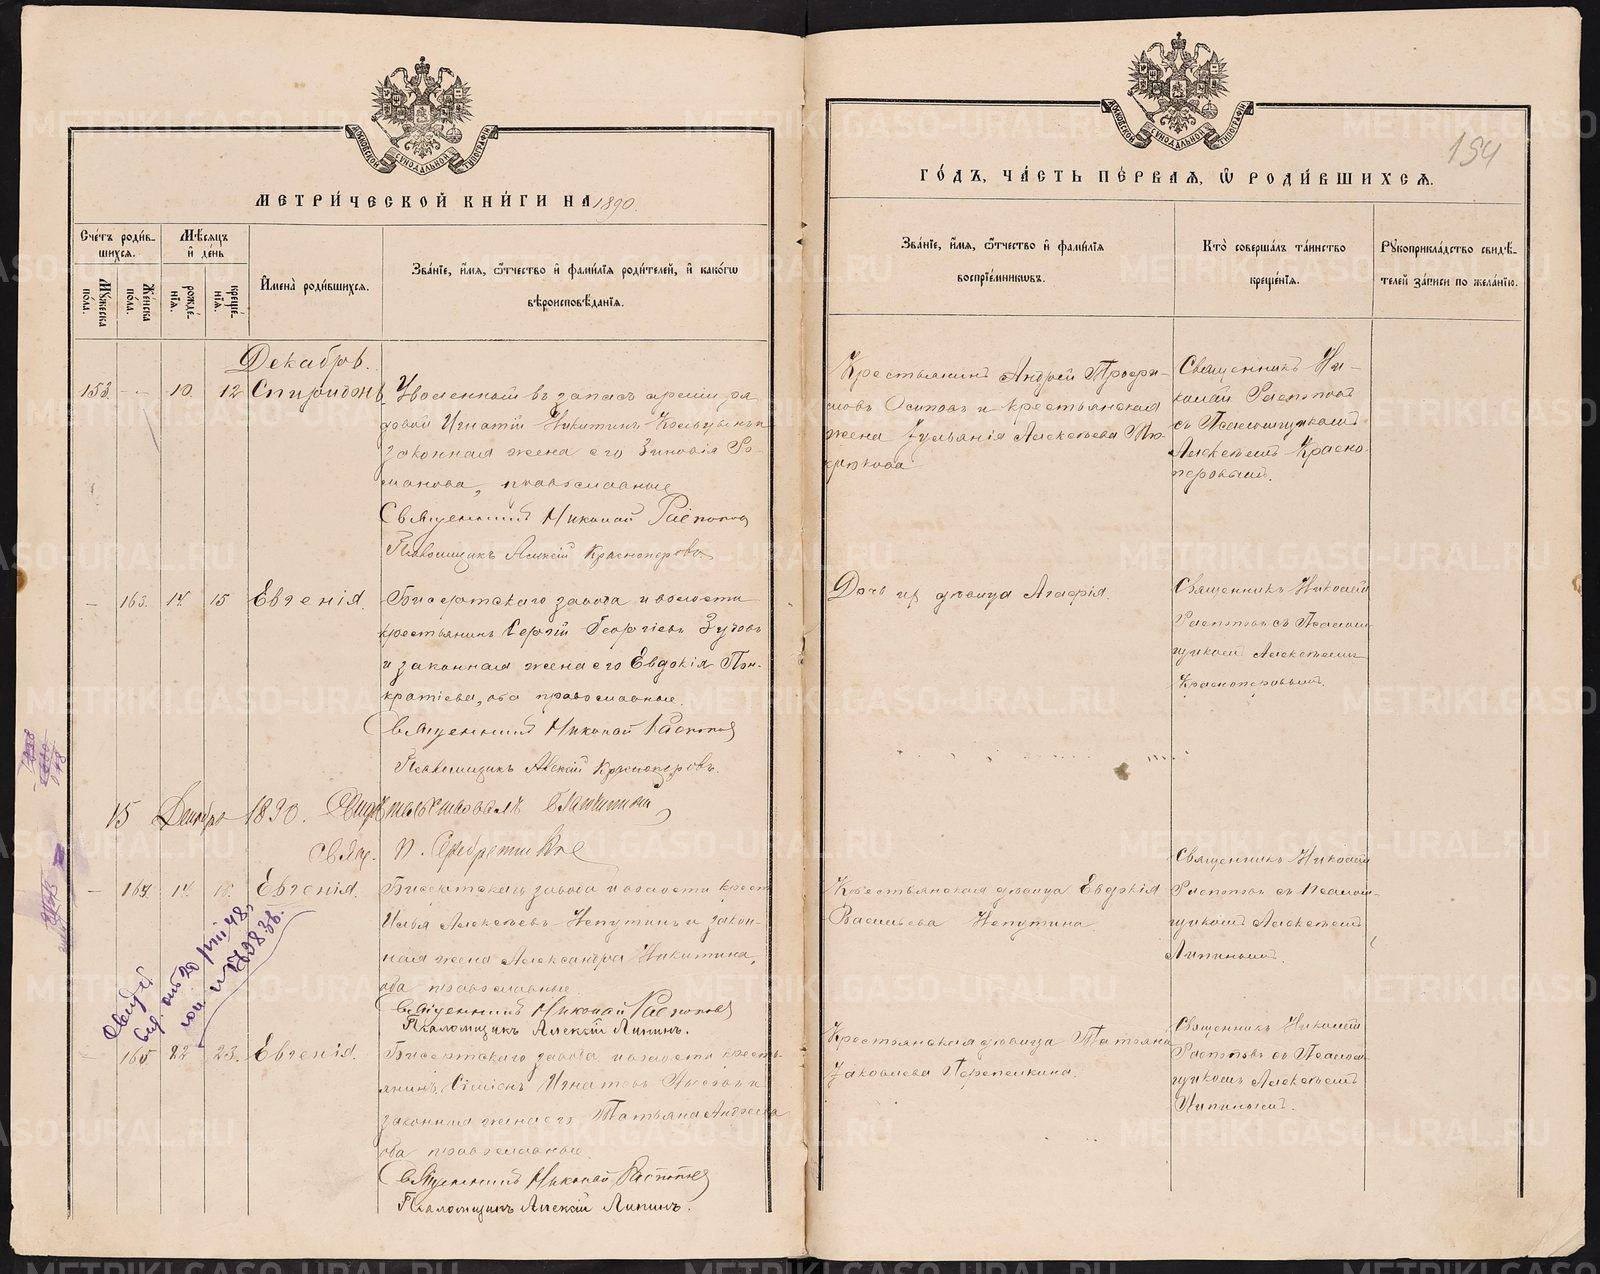 МЕТРИ́ЧЕСКОЙ КНИ́ГИ НА 1890.
Сче́тъ роди́в-
шихся.
Мѣ́сяцъ
и҆ де́нь
Му́жеска
по́ла.
Же́нска
по́ла.
рожде́-
нїя.
креще́-
нїя.
И҆мена̀ роди́вшихся.
Зва́нїе, и҆́мя, ѻ҆́тчество и҆ фами́лїя роди́телей, и҆ како́гѡ
вѣроисповѣ́данїя.
Декабрь.
153. - - 10. 12 Спиридонъ
Уволенный въ запасъ армии ря
довой Игнатій Никитинъ
законная жена его Зиновія Ро-
манова, православные
Священникъ Николай Распоповъ
Псаломщикъ Алексій Красноперовъ.
- 163. 14. 15 Евгенія.
Бисертскаго завода и волости
крестьянинъ Сергій Георгіевъ Зуевъ
и законная жена его Евдокія Пан-
кратіева, оба православные.
Священникъ Николай Распоповъ
Псаломщикъ Алексій Красноперовъ.
15 Декабря 1890. Свидѣтельствовалъ
Свящ.
- 164. 14. 15. Евгенія.
Бисертскаго завода и волости крест.
Илья Алексѣевъ Непутинъ и закон-
ная жена Александра Никитина,
оба православные
Священникъ Николай Распоповъ
Псаломщикъ Алексій Липинъ.
165 22 23. Евгенія.
Бисертскаго завода и волости кресть-
янинъ Сімеонъ Игнатьевъ и
законная жена его Татьяна Андреева
оба православные.
Священникъ Николай Распоповъ
Псаломщикъ Алексій Липинъ.
ГО́ДЪ, ЧА́СТЬ ПЕ́РВАЯ, Ѡ҆ РОДИ́ВШИХСЯ.
154
Зва́нїе, и҆́мя, ѻ҆́тчество и҆ фами́лїя
воспрїе́мниковъ.
Кто̀ соверша́лъ та́инство
креще́нїя.
Рꙋкоприкла́дство свидѣ́-
телей за́писи по жела́нїю.
Крестьянинъ Андрей Трофи-
мовъ Осиповъ и крестьянская
жена Іуліанія Алексѣева
Священникъ Ни-
колай Распоповъ
съ Псаломщикомъ
Алексѣемъ Красно-
перовымъ.
Дочь их дѣвица Агафія.
Священникъ Николай
Распоповъ съ Псалом-
щикомъ Алексѣемъ
Красноперовымъ.
Крестьянская дѣвица Евдокія
Васильева Непутина
Священникъ Николай
Распоповъ съ Псалом-
щикомъ Алексѣемъ
Липинымъ.
Крестьянская дѣвица Татьяна
Яковлева Перепелкина.
Священникъ Николай
Распоповъ съ Псалом-
щикомъ Алексѣемъ
Липинымъ.
METRIKI.GASO-URAL.RU